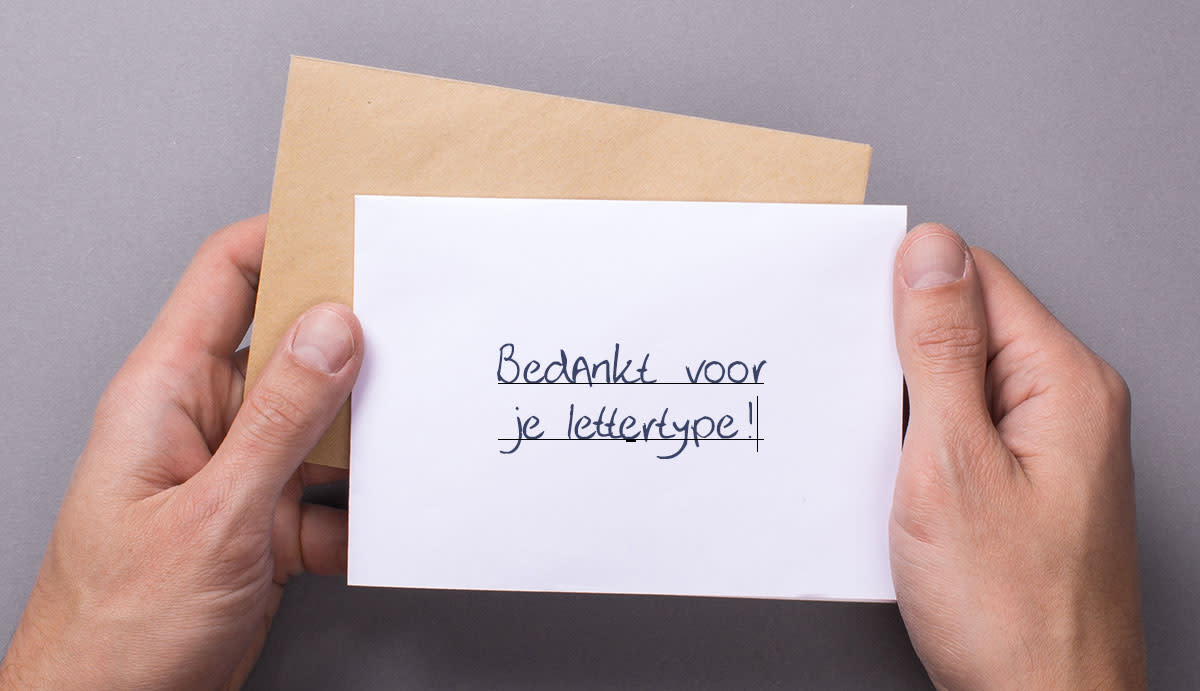 BedAnkt voor
je lettertype!